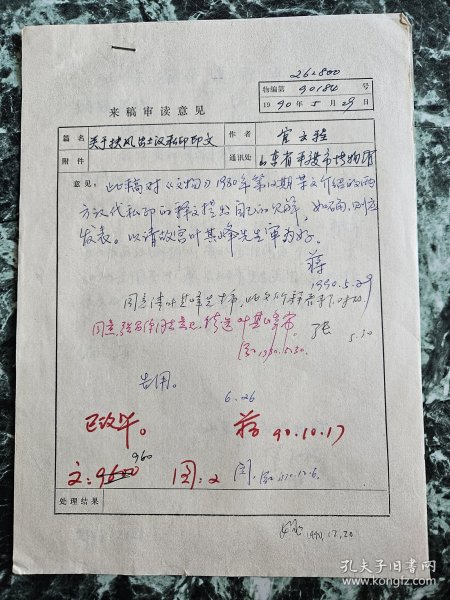 262800
物编第 90184 号
1990年5月29日
来稿审读意见
篇名 关于扶风出土汉私印印文
作者 官文
附件
通讯处 山东省平度市博物馆
意见：此稿对《文物》1980年第12期某文介绍的两
方汉代私印的释文提出自己的见解，如确，则应
发表。以请故宫叶其峰先生审为好。
蒋
1990.5.29
同意请叶其峰先生审，
张
5.30
同意 送叶其峰审。
1990.5.30.
6.26
去用。
已改毕。
蒋 90.10.17
文：960
图：2
处理结果
1990.12.20
孔夫子旧书网
www.kongfz.com